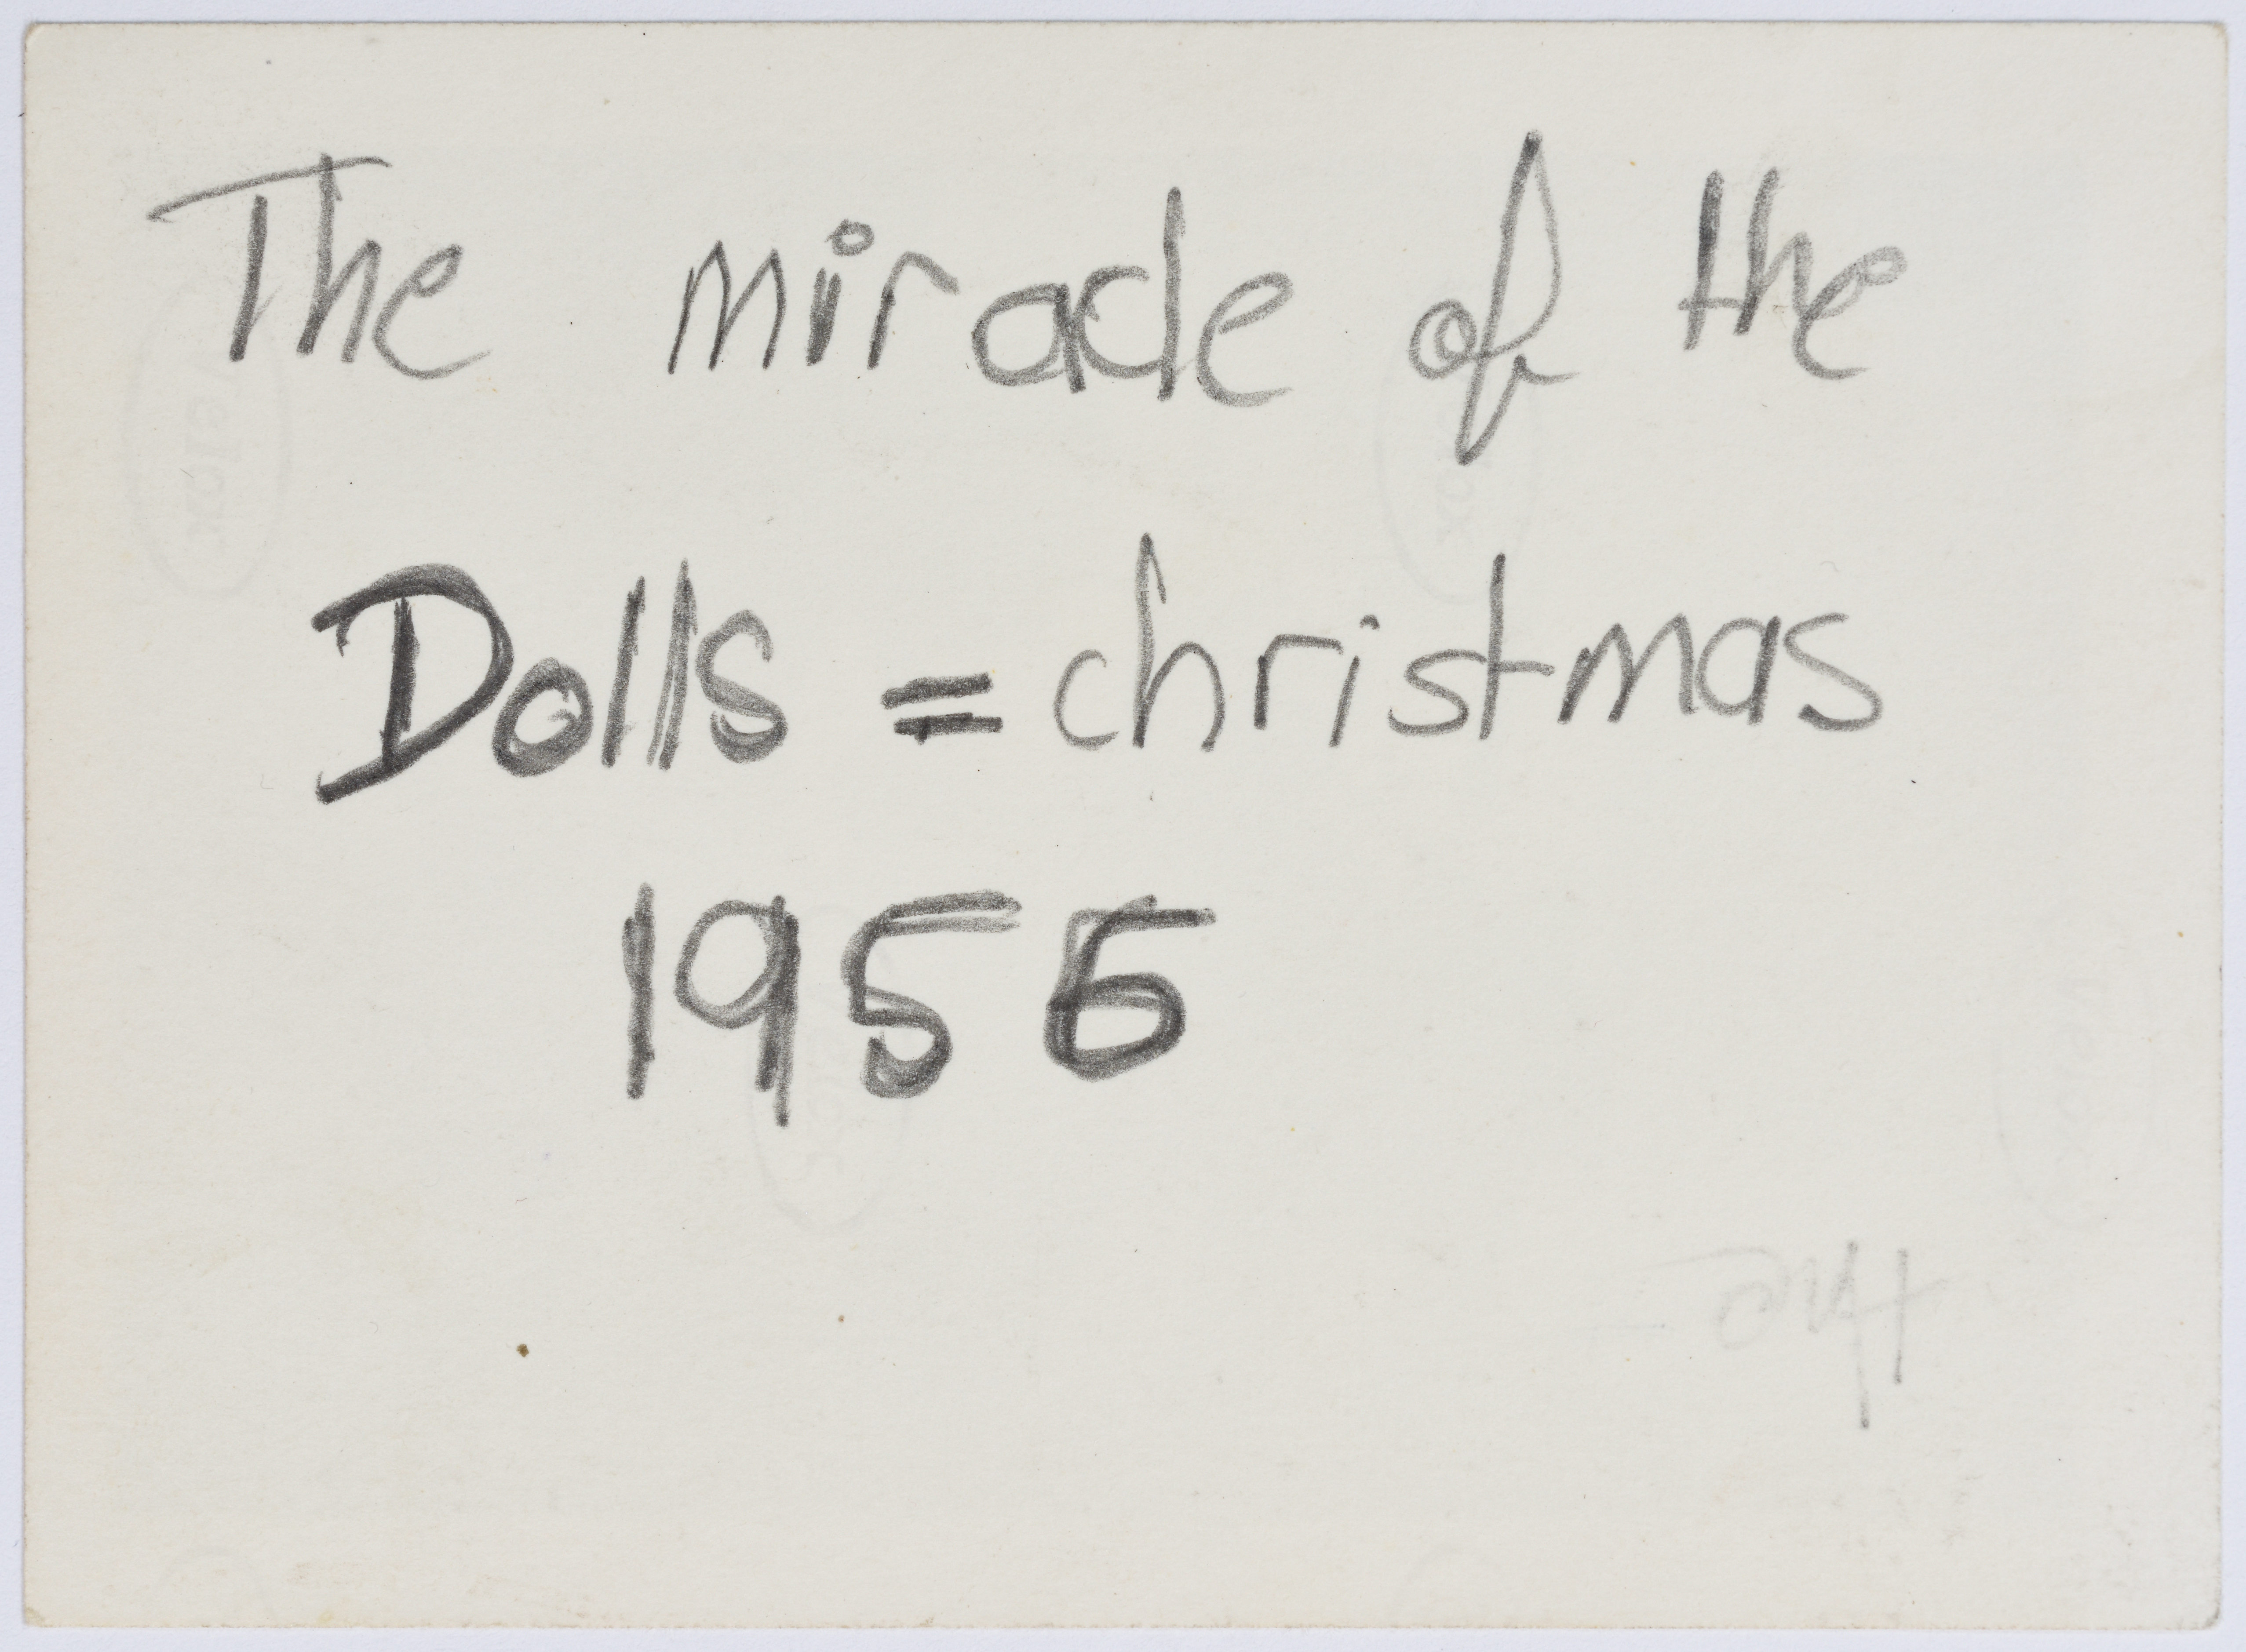 The miracle of the
Dolls = christmas
1956